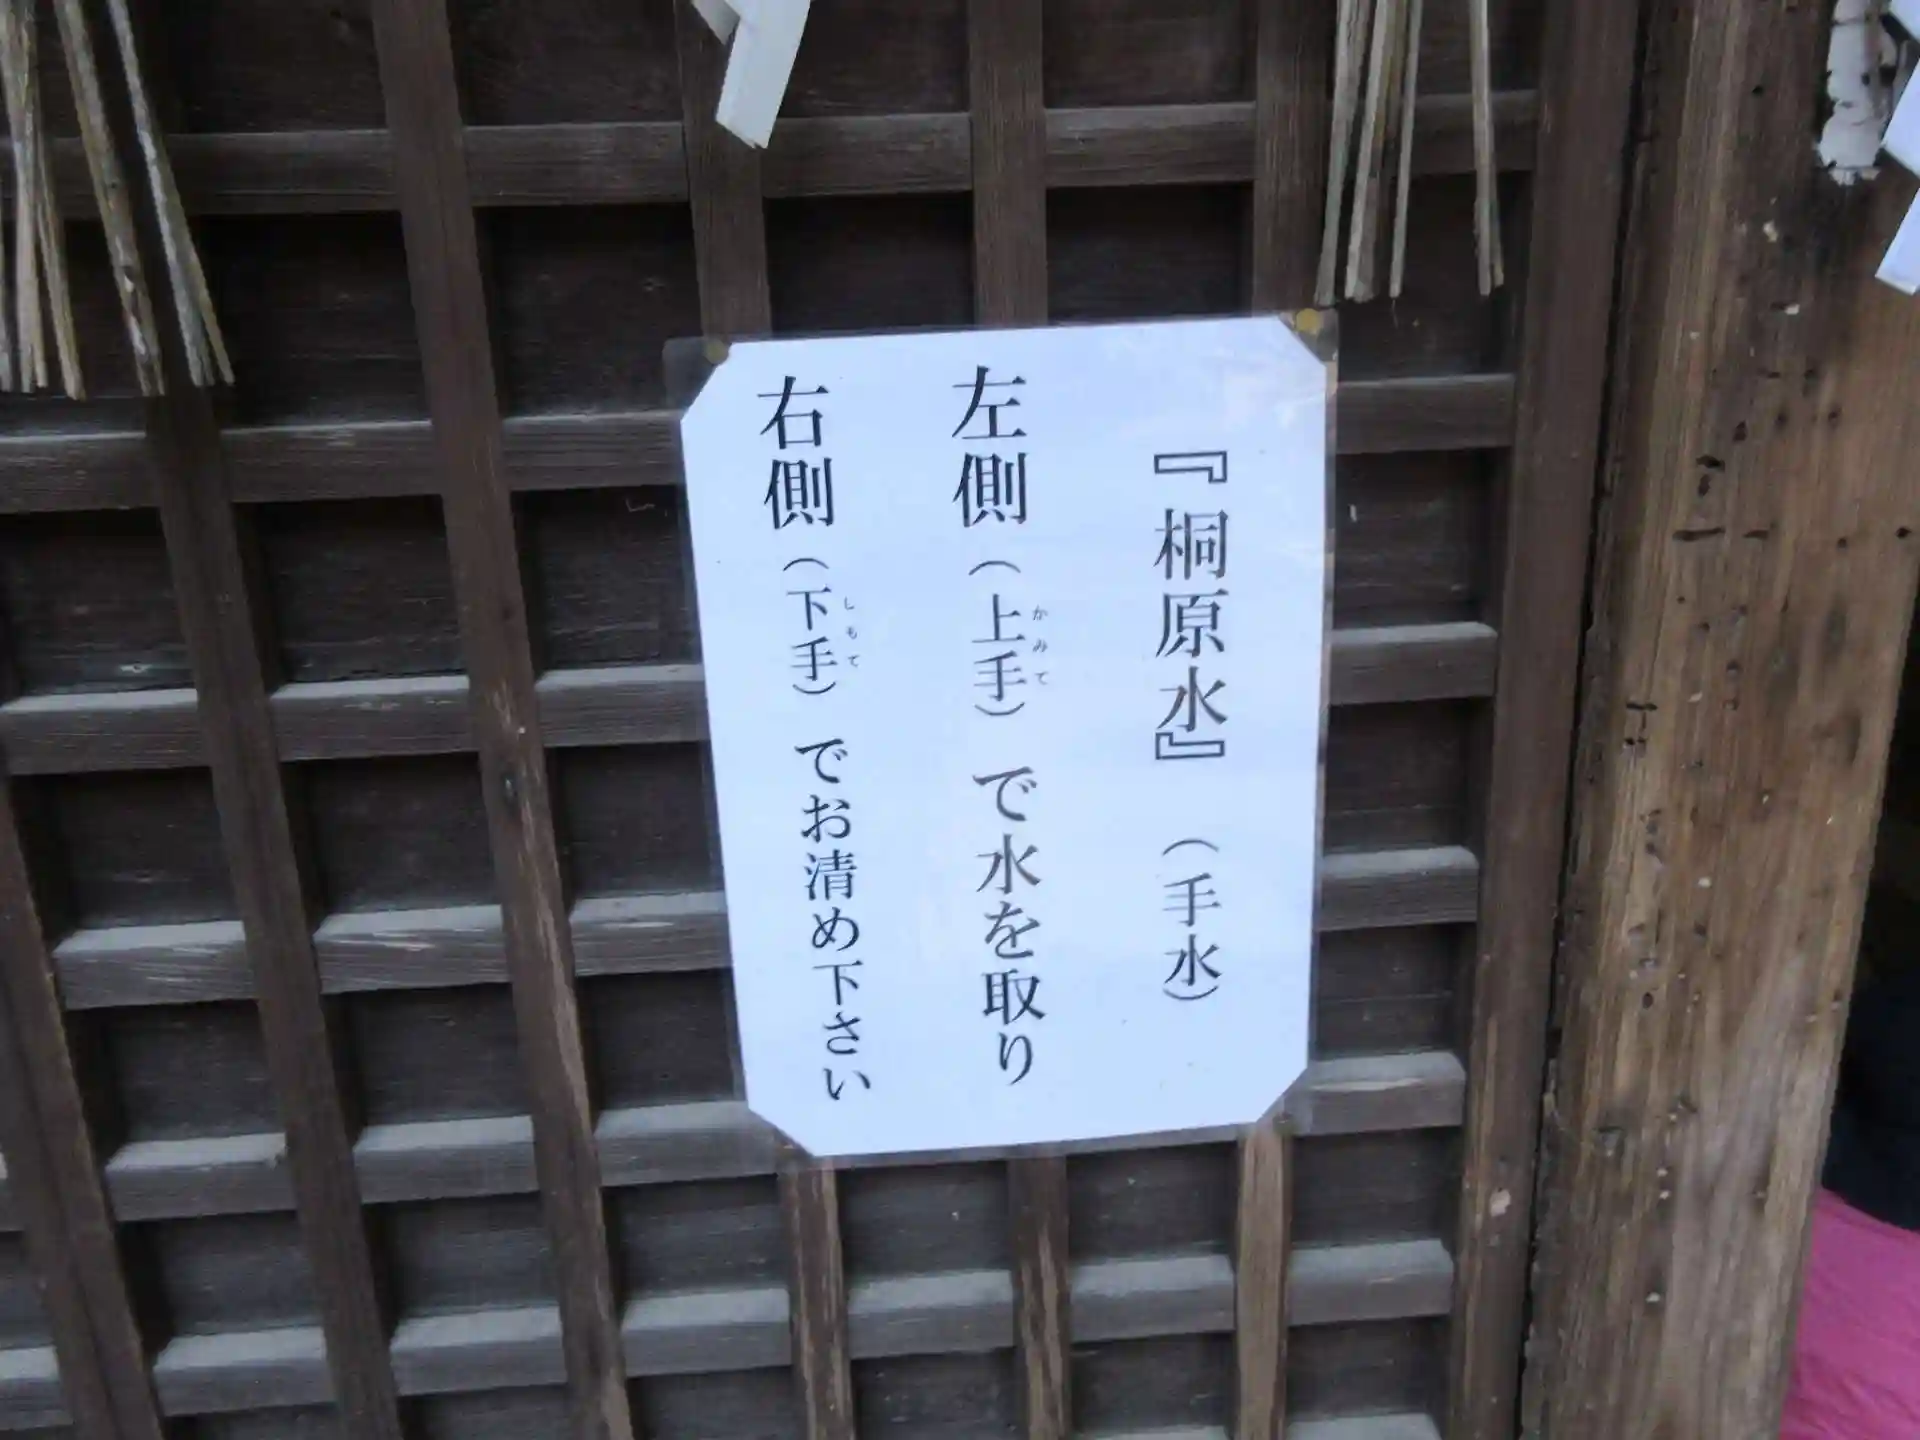 『桐原水』（手水）
左側（上手）で水を取り
かみて
右側（下手）でお清め下さい
しもて